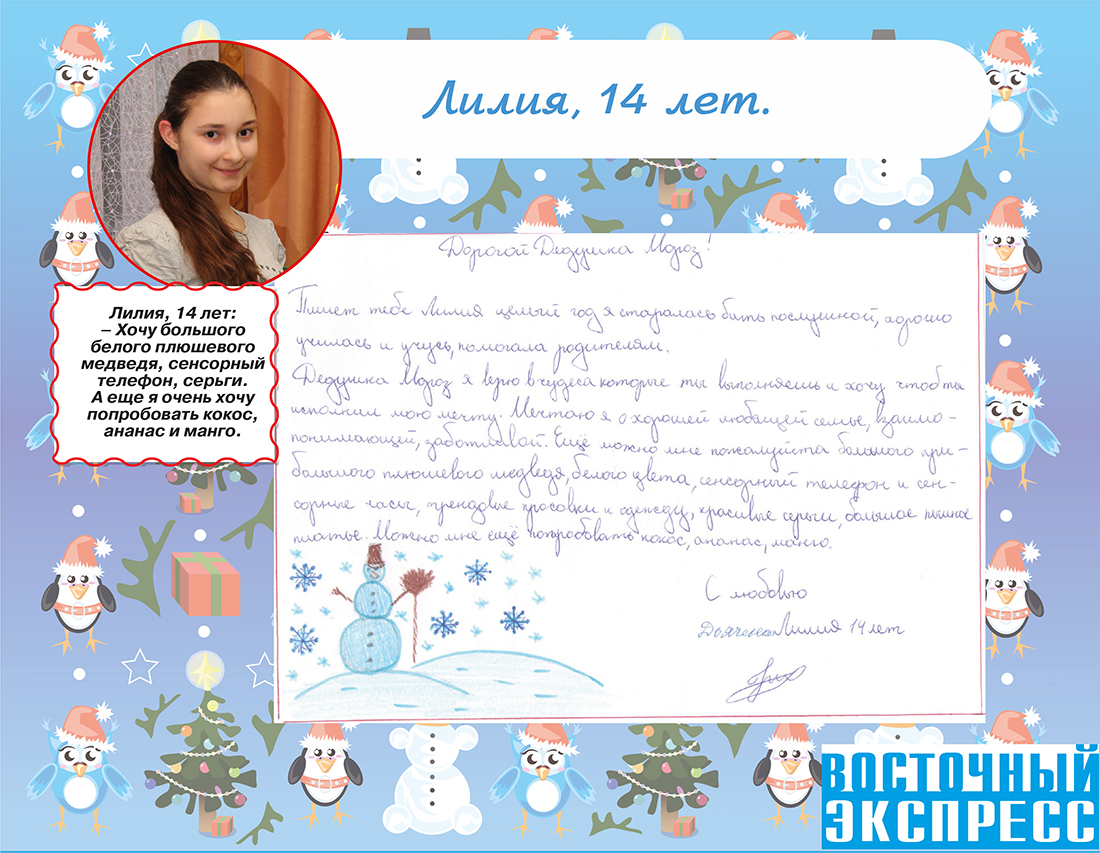 Лилия, 14 лет.
Лилия, 14 лет:
– Хочу большого
белого плюшевого
медведя, сенсорный
телефон, серьги.
А еще я очень хочу
попробовать кокос,
ананас и манго.
Дорогой Дедушка Мороз!
Пишет тебе Лилия целый год я старалась быть послушной, хорошо
училась и учусь, помогала родителям.
Дедушка Мороз я верю в чудеса которые ты выполняешь и хочу чтоб ты
исполнил мою мечту. Мечтаю я о хорошей любящей семье, взаимо-
понимающей, заботливой. Ещё можно мне пожалуйста большого при-
большого плюшевого медведя, белого цвета, сенсорный телефон и сен-
сорные часы, трендовые кросовки и одежду, красивые серьги, большое пышное
платье. Можно мне ещё попробовать кокос, ананас, манго.
С любовью
Лилия 14 лет
ВОСТОЧНЫЙ
ЭКСПРЕСС